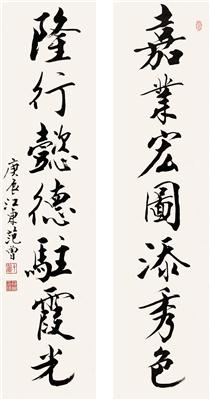 嘉業宏圖添秀色
隆行懿德駐霞光
庚辰江東范曾